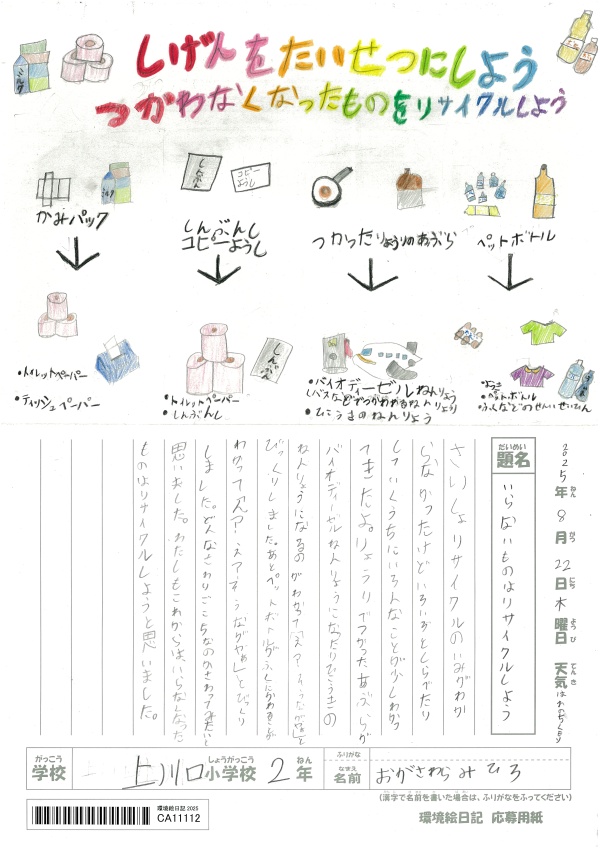 しげんをたいせつにしよう
つかわなくなったものをリサイクルしよう
ミルク
かみパック
しんぶん
コピーようし
しんぶんし
コピーようし
つかったりょうりのあぶら
ペットボトル
・トイレットペーパー
・ティッシュペーパー
しんぶん
・トイレットペーパー
・しんぶんし
・バイオディーゼルねんりょう
(バスなどでつかわれるねんりょう
・ひこうきのねんりょう
・ようき
・ペットボトル
・ふくなどのせんいせいひん
2025年ねん8月がつ22日にち木曜日ようび 天気てんき
題名だいめい
いらないものはリサイクルしよう
さいしょリサイクルのいみがわか
らなかったけどいろいろとしらべたり
していくうちにいろんなことが少しわかっ
てきたよ。りょうりでつかったあぶらが
バイオディーゼルねんりょうになったりひこうきの
ねんりょうになるのがわかって
びっくりしました。あとペットボトルがふくにかわるのが
わかって「え？ えってそうなの」とびっくり
しました。どんなさわりごこちなのかさわってみたいと
思いました。わたしもこれからは、いらなくなった
ものはリサイクルしようと思いました。
学校がっこう 上川口小学校しょうがっこう 2年ねん
ふりがな
名前なまえ おがさわら みひろ
(漢字で名前を書いた場合は、ふりがなをふってください)
環境絵日記 2025
CA11112
環境絵日記 応募用紙